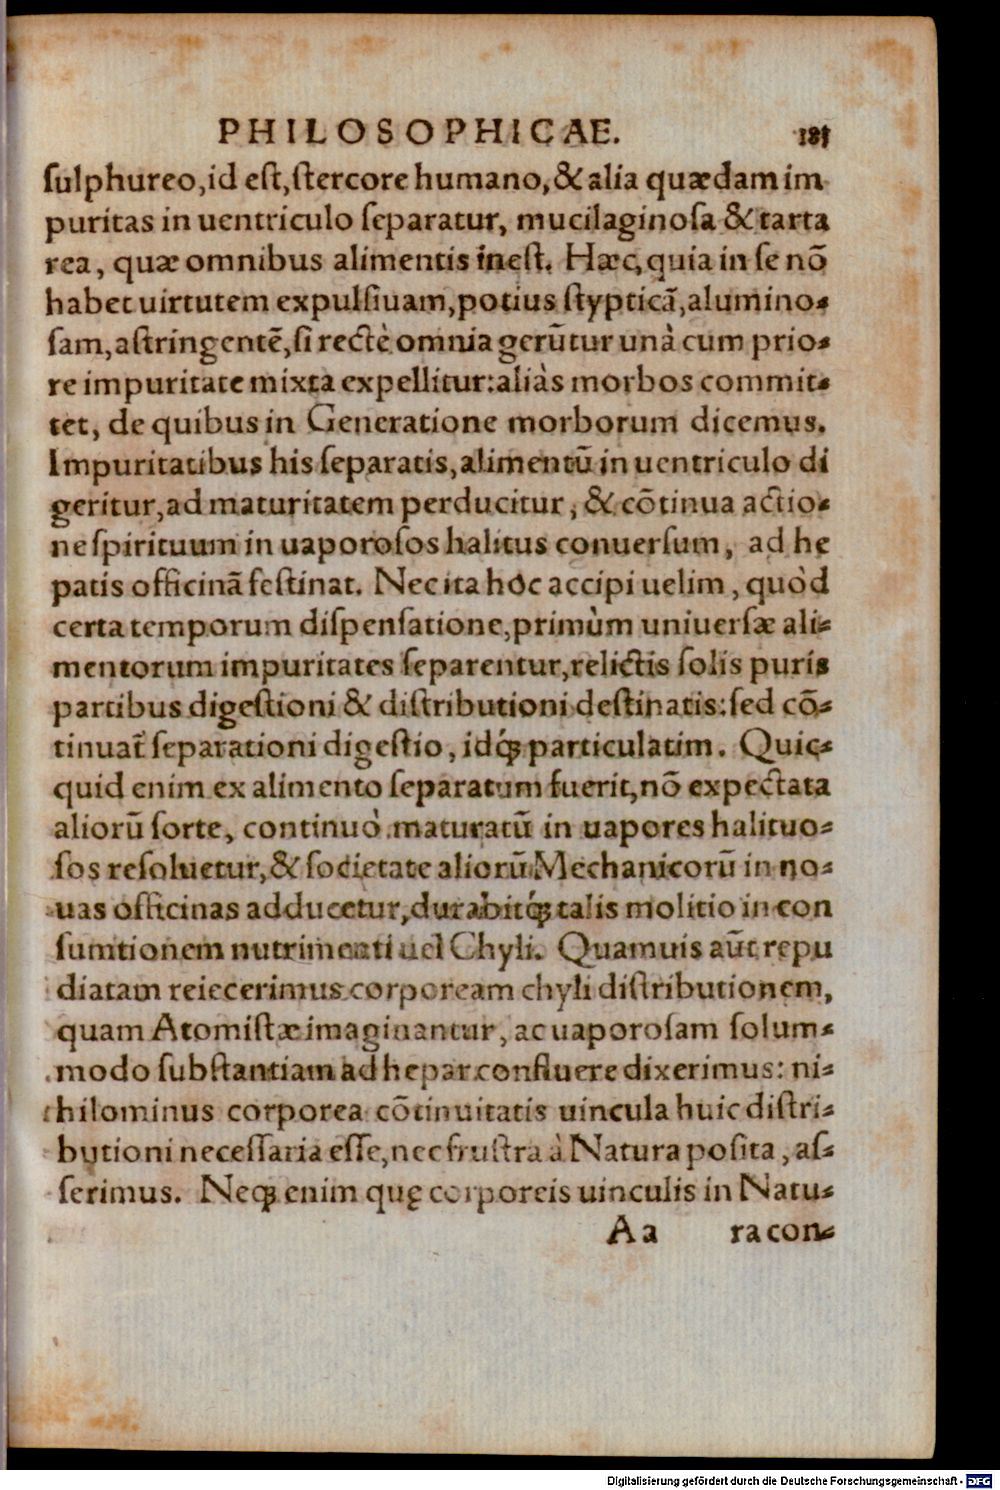 PHILOSOPHICAE. 185
ſulphureo,id eſt,ſtercore humano,& alia quædam im
puritas in uentriculo ſeparatur, mucilaginoſa & tarta
rea, quæ omnibus alimentis ineſt. Hæc,quia in ſe nō
habet uirtutem expulſiuam,potius ſtypticā,alumino-
ſam,aſtringentē,ſi rectè omnia gerūtur unà cum prio-
re impuritate mixta expellitur:aliàs morbos commit-
tet, de quibus in Generatione morborum dicemus.
Impuritatibus his ſeparatis,alimentū in uentriculo di
geritur,ad maturitatem perducitur, & cōtinua actio-
ne ſpirituum in uaporoſos halitus conuerſum, ad he
patis officinā feſtinat. Nec ita hoc accipi uelim, quòd
certa temporum diſpenſatione,primùm uniuerſæ ali-
mentorum impuritates ſeparentur,relictis ſolis puris
partibus digeſtioni & diſtributioni deſtinatis:ſed cō-
tinuat̄ ſeparationi digeſtio, idq́; particulatim. Quic-
quid enim ex alimento ſeparatum fuerit,nō expectata
aliorū ſorte, continuò maturatū in uapores halituo-
ſos reſoluetur,& ſocietate aliorū Mechanicorū in no-
uas officinas adducetur,durabitq́; talis molitio in con
ſumtionem nutrimenti uel Chyli. Quamuis aūt repu
diatam reiecerimus corpoream chyli diſtributionem,
quam Atomiſtæ imaginantur, ac uaporoſam ſolum-
modo ſubſtantiam ad hepar confluere dixerimus: ni-
hilominus corporea cōtinuitatis uincula huic diſtri-
butioni neceſſaria eſſe,nec fruſtra à Natura poſita, aſ-
ſerimus. Neq; enim quę corporeis uinculis in Natu-
Aa ra con-
Digitalisierung gefördert durch die Deutsche Forschungsgemeinschaft - DFG